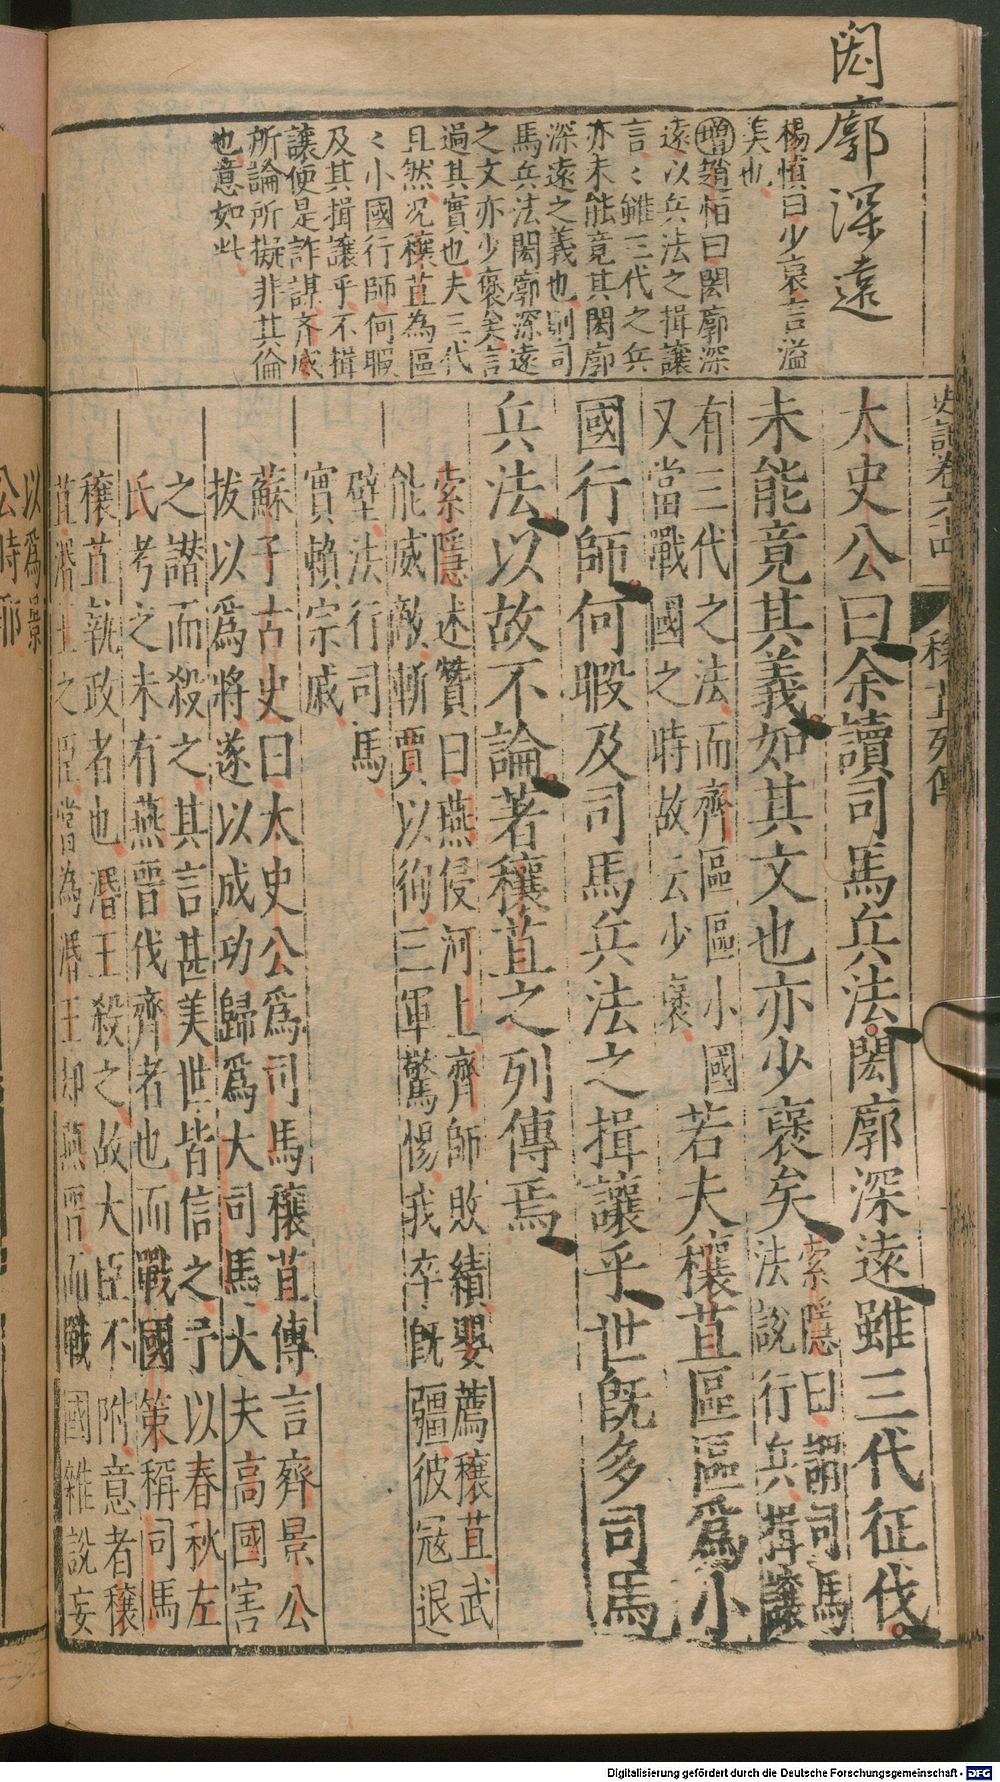 閎廓深遠
楊慎曰少哀言溢
美也
增趙恒曰閎廓深
遠以兵法之揖讓
言〻雖三代之兵
亦未能竟其閎廓
深遠之義也則司
馬兵法閎廓深遠
之文亦少褒矣言
過其實也夫三代
且然况穰苴為區
〻小國行師何暇
及其揖讓乎不揖
讓便是詐謀齐威
所論所擬非其倫
也意如此
史記卷六十四 穰苴列傳
太史公曰余讀司馬兵法閎廓深遠雖三代征伐
未能竟其義如其文也亦少褒矣
索隱曰謂司馬
法說行兵揖讓
有三代之法而齊區區小國
又當戰國之時故云少褒
若夫穰苴區區爲小
國行師何暇及司馬兵法之揖讓乎世既多司馬
兵法以故不論著穰苴之列傳焉
索隱述贊曰燕侵河上齊師敗績嬰薦穰苴武
能威敵斬賈以徇三軍驚惕我卒既彊彼寇退
壁法行司馬
實賴宗戚
蘇子古史曰太史公爲司馬穰苴傳言齊景公
拔以爲將遂以成功歸爲大司馬大夫高國害
之譖而殺之其言甚美世皆信之予以春秋左
氏考之未有燕晉伐齊者也而戰國策稱司馬
穰苴執政者也湣王殺之故大臣不附意者穰
苴湣王之臣嘗為湣王却燕晉而戰國雜說妄
以爲景
公時耶
Digitalisierung gefördert durch die Deutsche Forschungsgemeinschaft - DFG